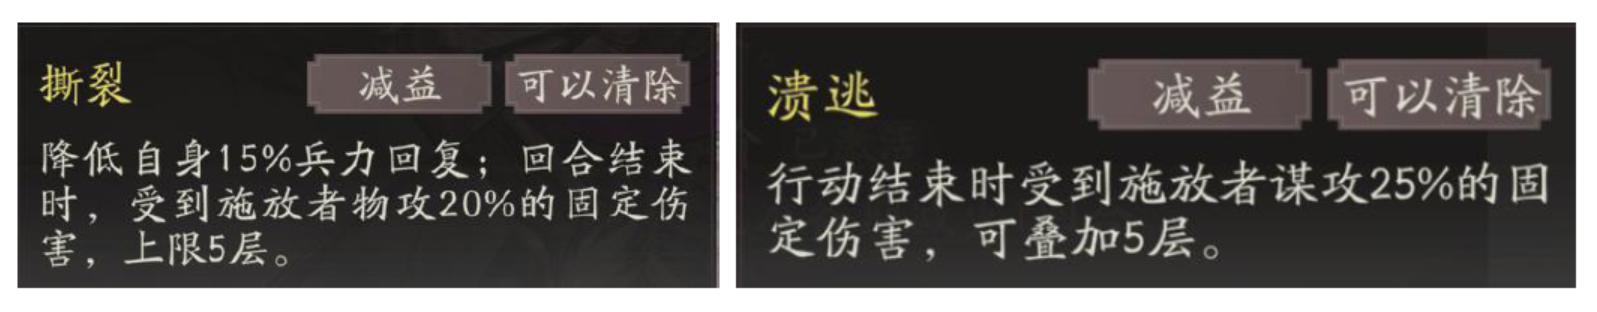 撕裂 减益 可以清除
降低自身15%兵力回复；回合结束
时，受到施放者物攻20%的固定伤
害，上限5层。
溃逃 减益 可以清除
行动结束时受到施放者谋攻25%的固
定伤害，可叠加5层。